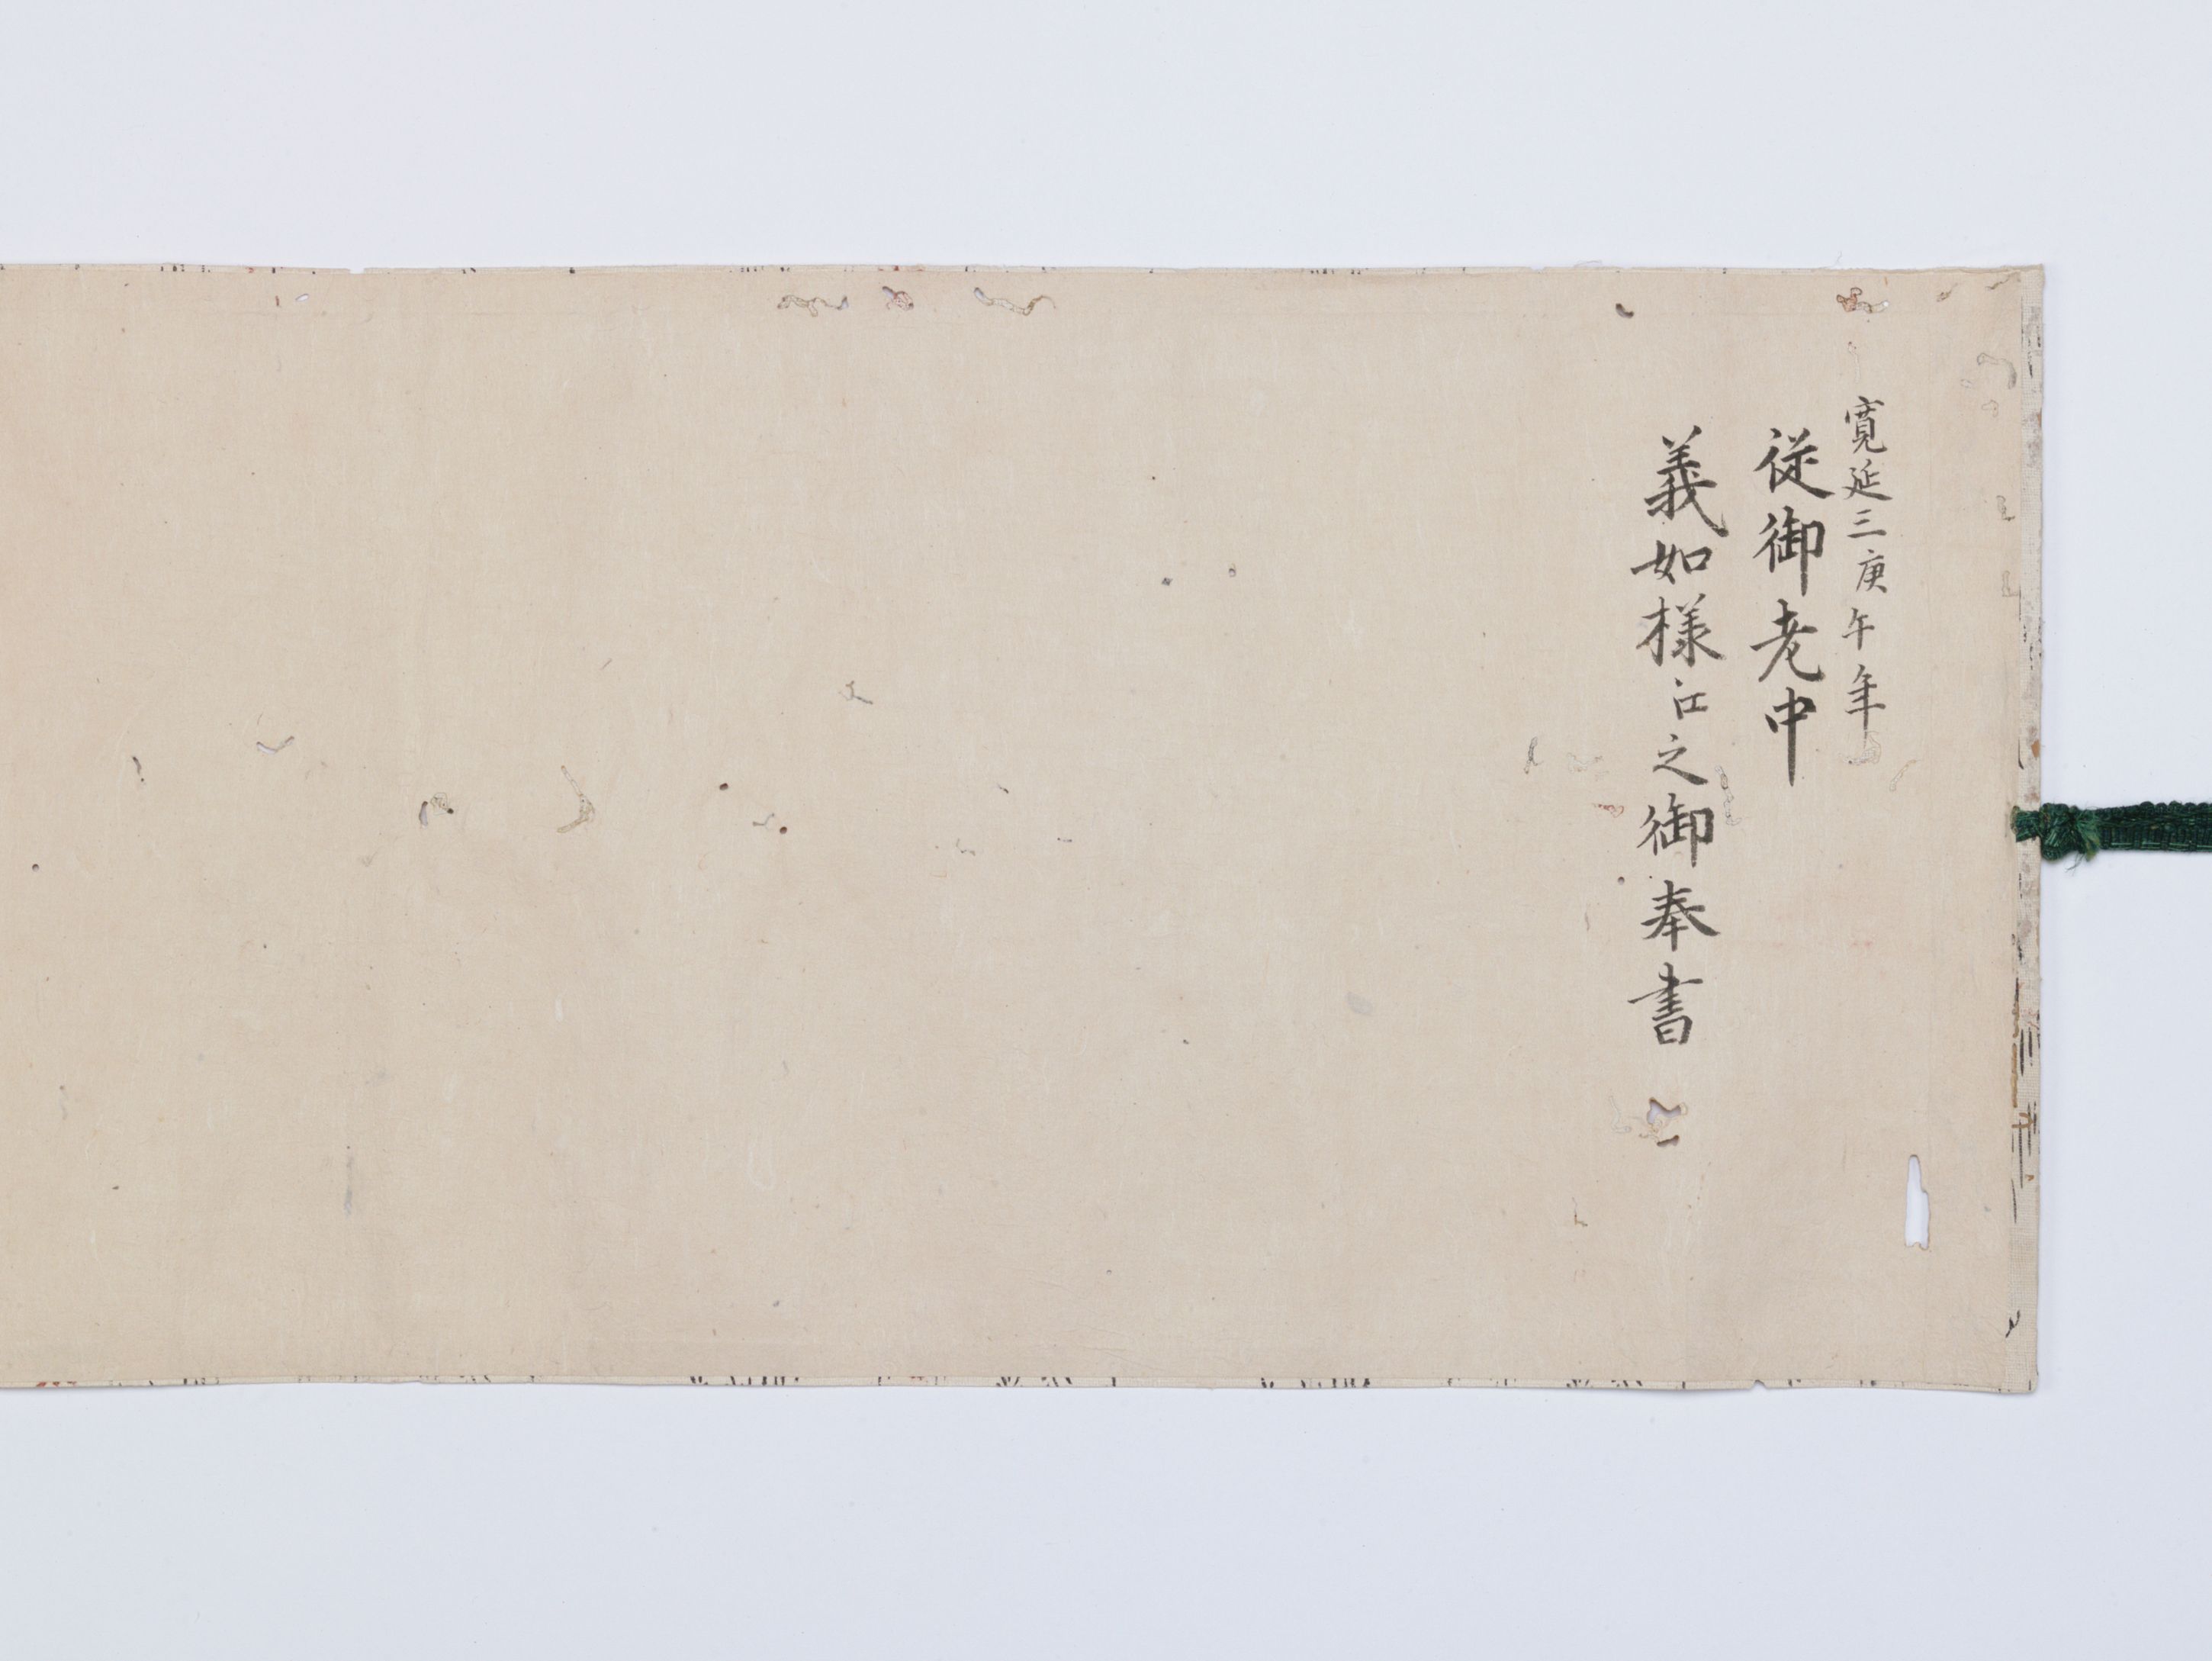 寛延三庚午年
従御老中
義如様江之御奉書